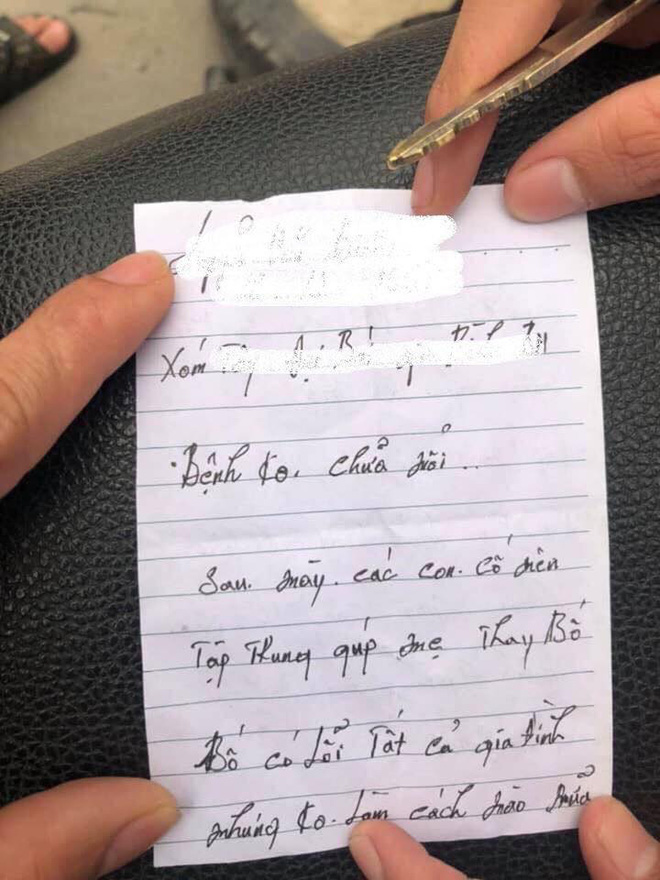 Xóm
Bệnh ko. chưả nổi...
Sau. này. các con. cố nên
Tập Trung gúp mẹ Thay Bố
Bố có Lỗi Tất cả gia đình
nhưng ko. Làm cách nào nưả